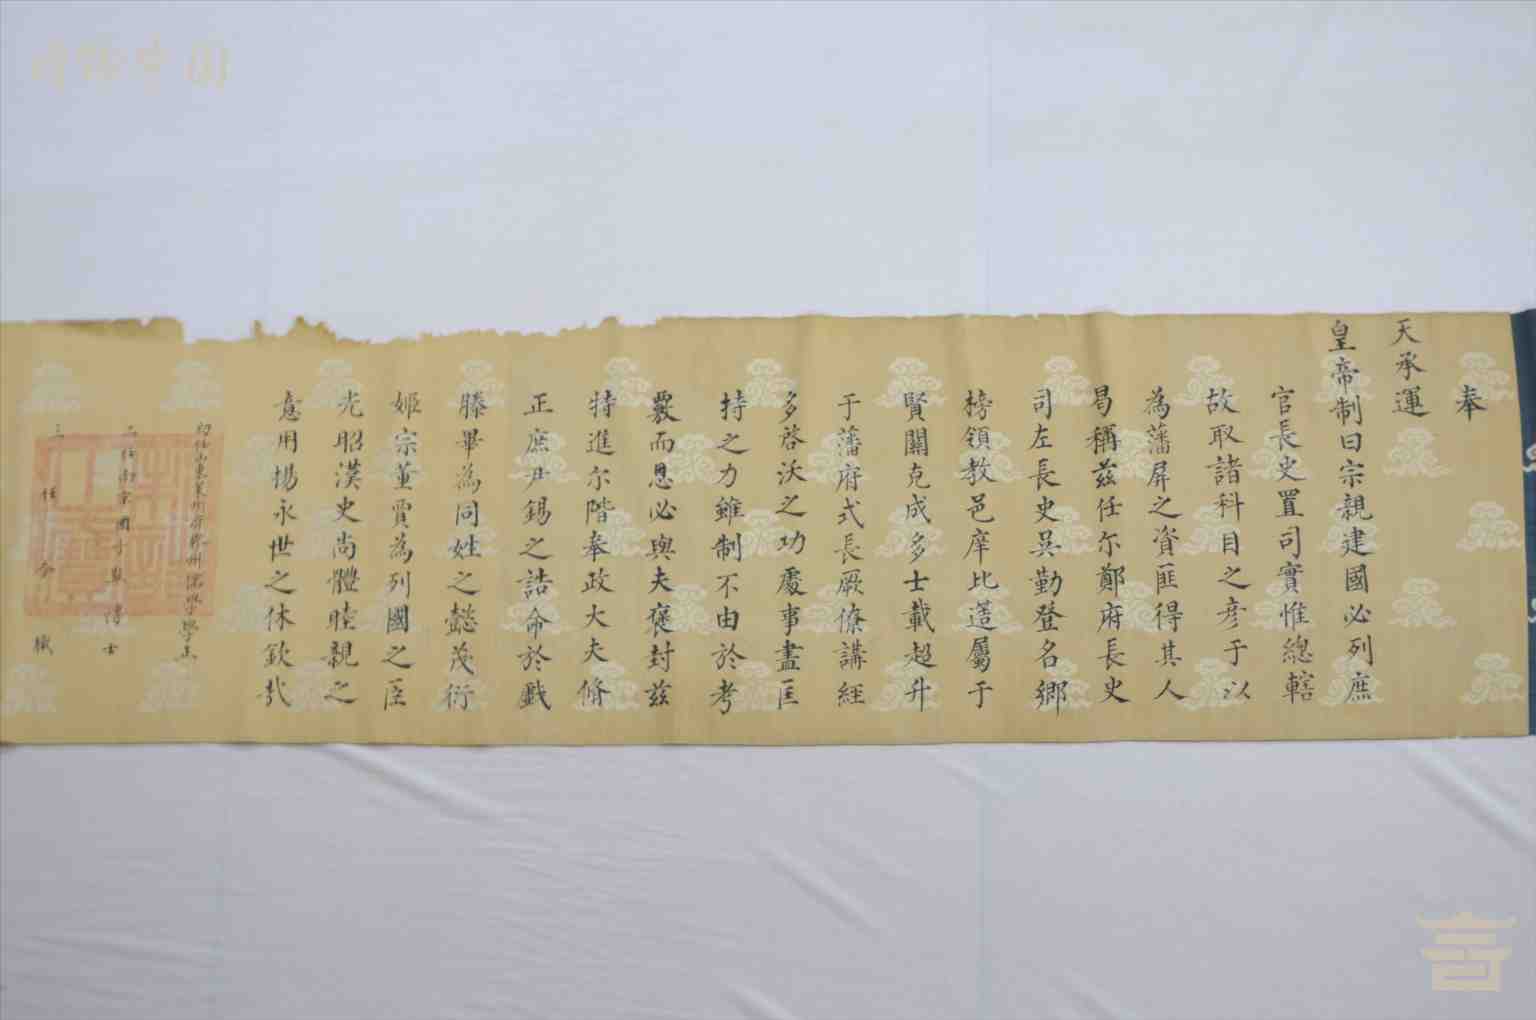 奉
天承運
皇帝制曰宗親建國必列庶
官長史置司實惟總轄
故取諸科目之彥于以
為藩屏之資匪得其人
曷稱茲任尔鄭府長史
司左長史吳勤登名鄉
榜領教邑庠比遷屬于
賢關克成多士載超升
于藩府式長厥僚講經
多啓沃之功處事盡匡
持之力雖制不由於考
覈而恩必與夫褒封茲
特進尔階奉政大夫脩
正庶尹錫之誥命於戲
滕畢為同姓之懿茂衍
姬宗董賈為列國之臣
光昭漢史尚體睦親之
意用揚永世之休欽哉
初任山東萊州府膠州儒學學正
二任南京國子監博士
三任今職